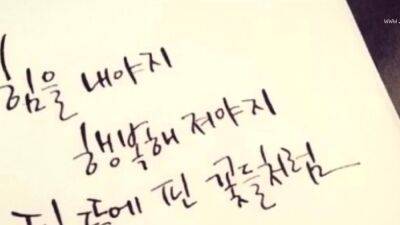 힘을 내야지
행복해 져야지
뒤뜰에 핀 꽃들처럼
www.